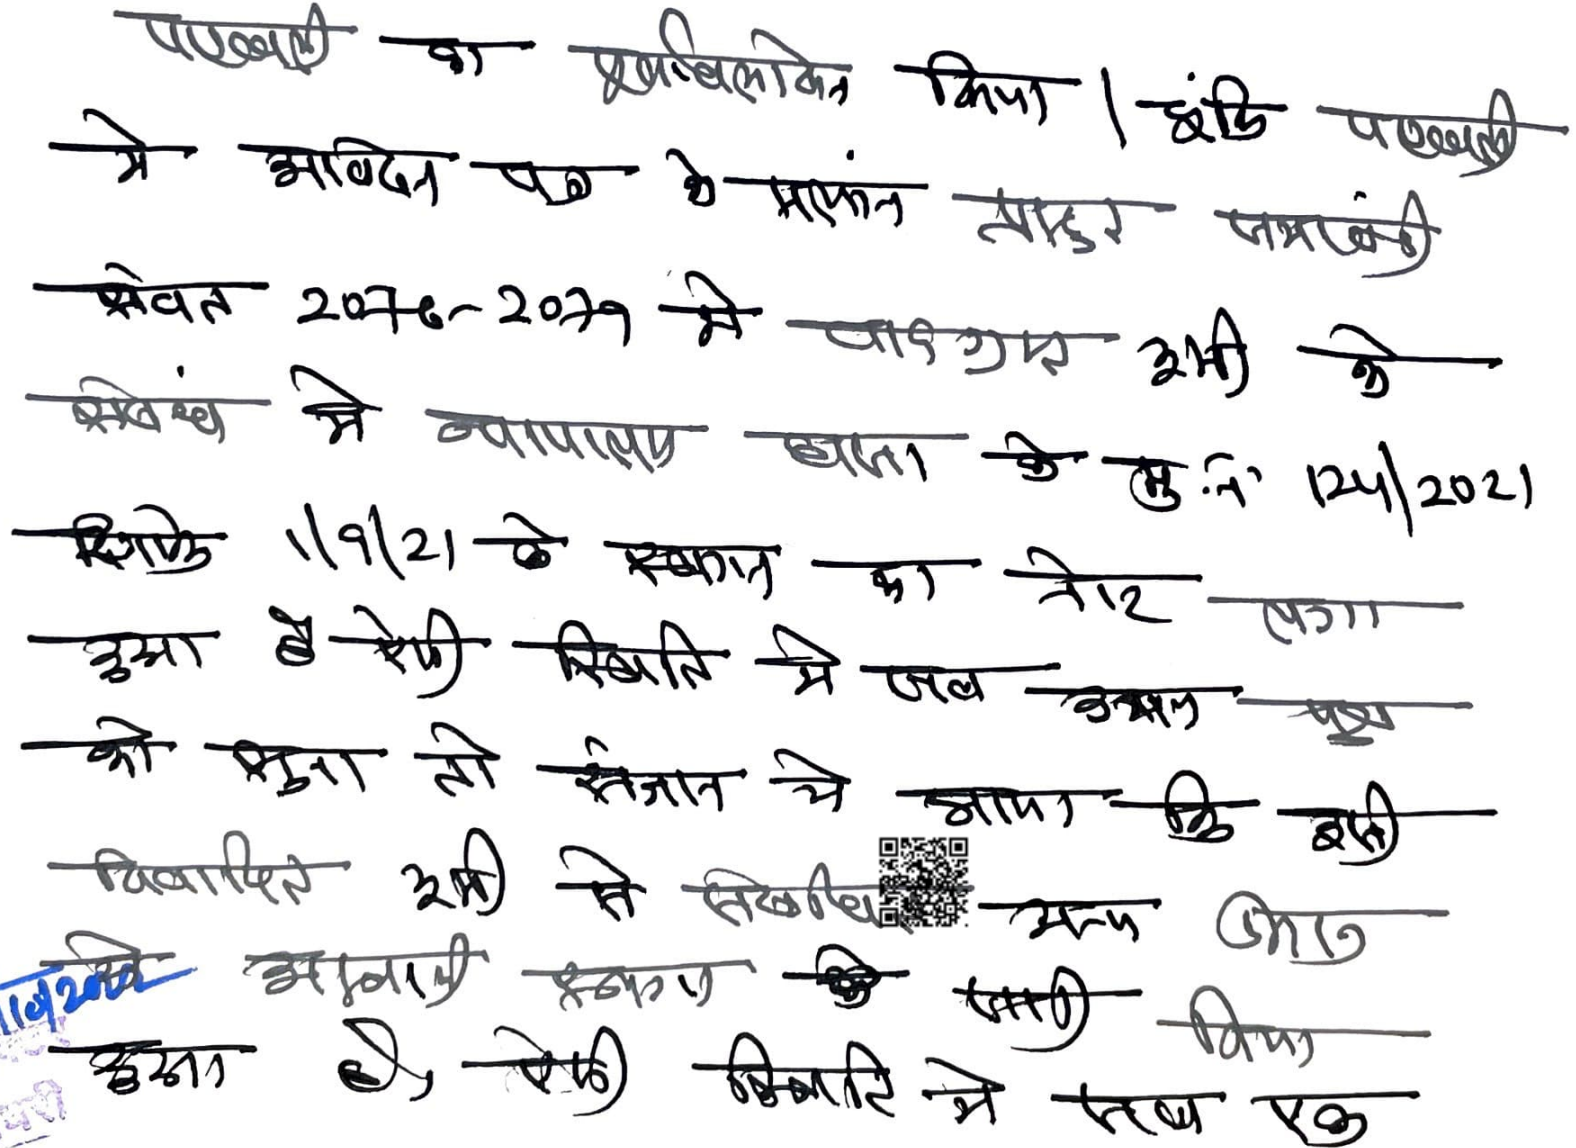 पत्रावली का पूर्णावलोकन किया | चूंकि पत्रावली
मे आवेदन पत्र के संलग्न जमाबंदी
संवत 2076-2079 मे भूमी के
संबंध मे न्यायालय के मु.न. 124/2021
दिनांक 1/9/21 के स्थगन का नोट लगा
हुआ है ऐसी स्थिति मे जब उभय पक्ष
को सुना तो संज्ञान मे आया कि इसी
विवादित भूमी से संबंधित अन्य
स्थगन के जारी किया
हुआ है, ऐसी स्थिति मे जब एक